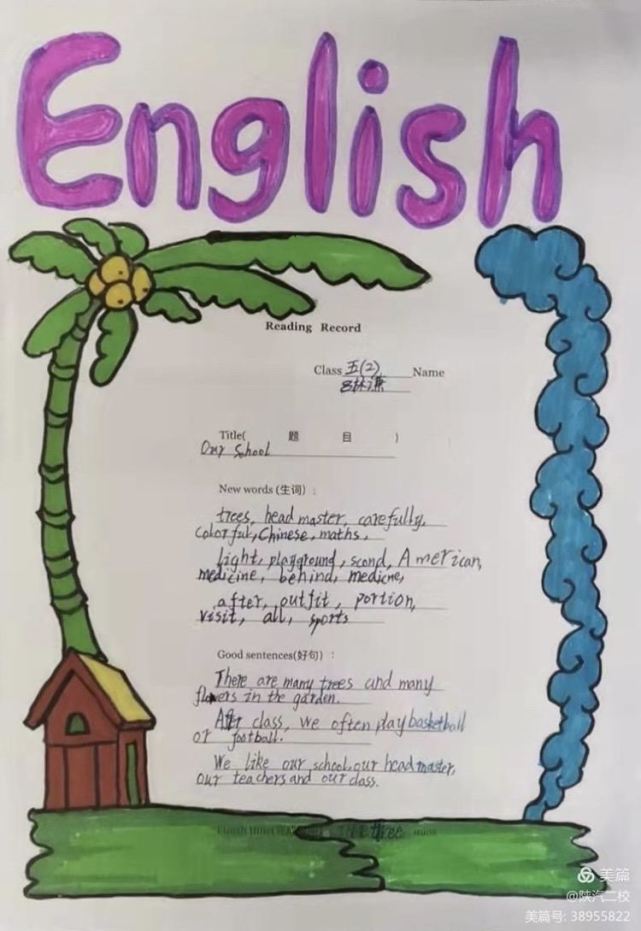 English
Reading Record
Class 五(2) Name
Title( 题 目 )
Our School
New words (生词) :
trees, head master, carefully,
colorful, Chinese, maths,
light, playground, scond, American,
medicine, behind, medicne,
after, outfit, portion,
visit, all, sports
Good sentences(好句) :
There are many trees and many
flowers in the garden.
After class, we often play basketball
or football.
We like our school, our head master,
our teachers and our class.
three mins
美篇
@陕汽二校
美篇号: 38955822